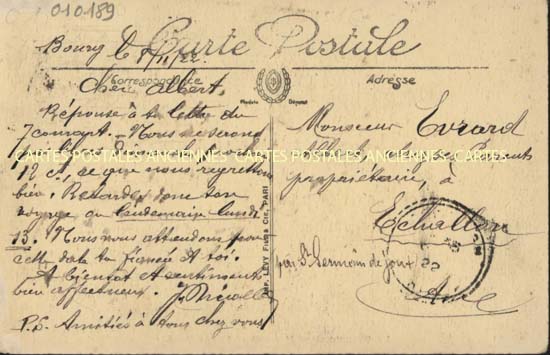 010189
Carte Postale
Bourg le 8/11/22
Correspondance
Adresse
Cher Albert,
Modèle Déposé
Réponse à ta lettre du
7 courant. Nous ne serons
CARTES POSTALES ANCIENNES CARTES POSTALES ANCIENNES CARTES POSTALES ANCIENNES
12 ct, ce que nous regrettons
bien. Retardez donc ton
voyage au lendemain lundi
13. Nous vous attendons pour
cette date ta fiancée et toi.
A bientôt et sentiments
bien affectueux.
P.S. Amitiés à tous chez vous
IMP. LEVY Fils & Cie, PARI
Monsieur Evrard
Albert, chez ses Parents
propriétaire, à
Echallon
par St Germain de Joux
Ain